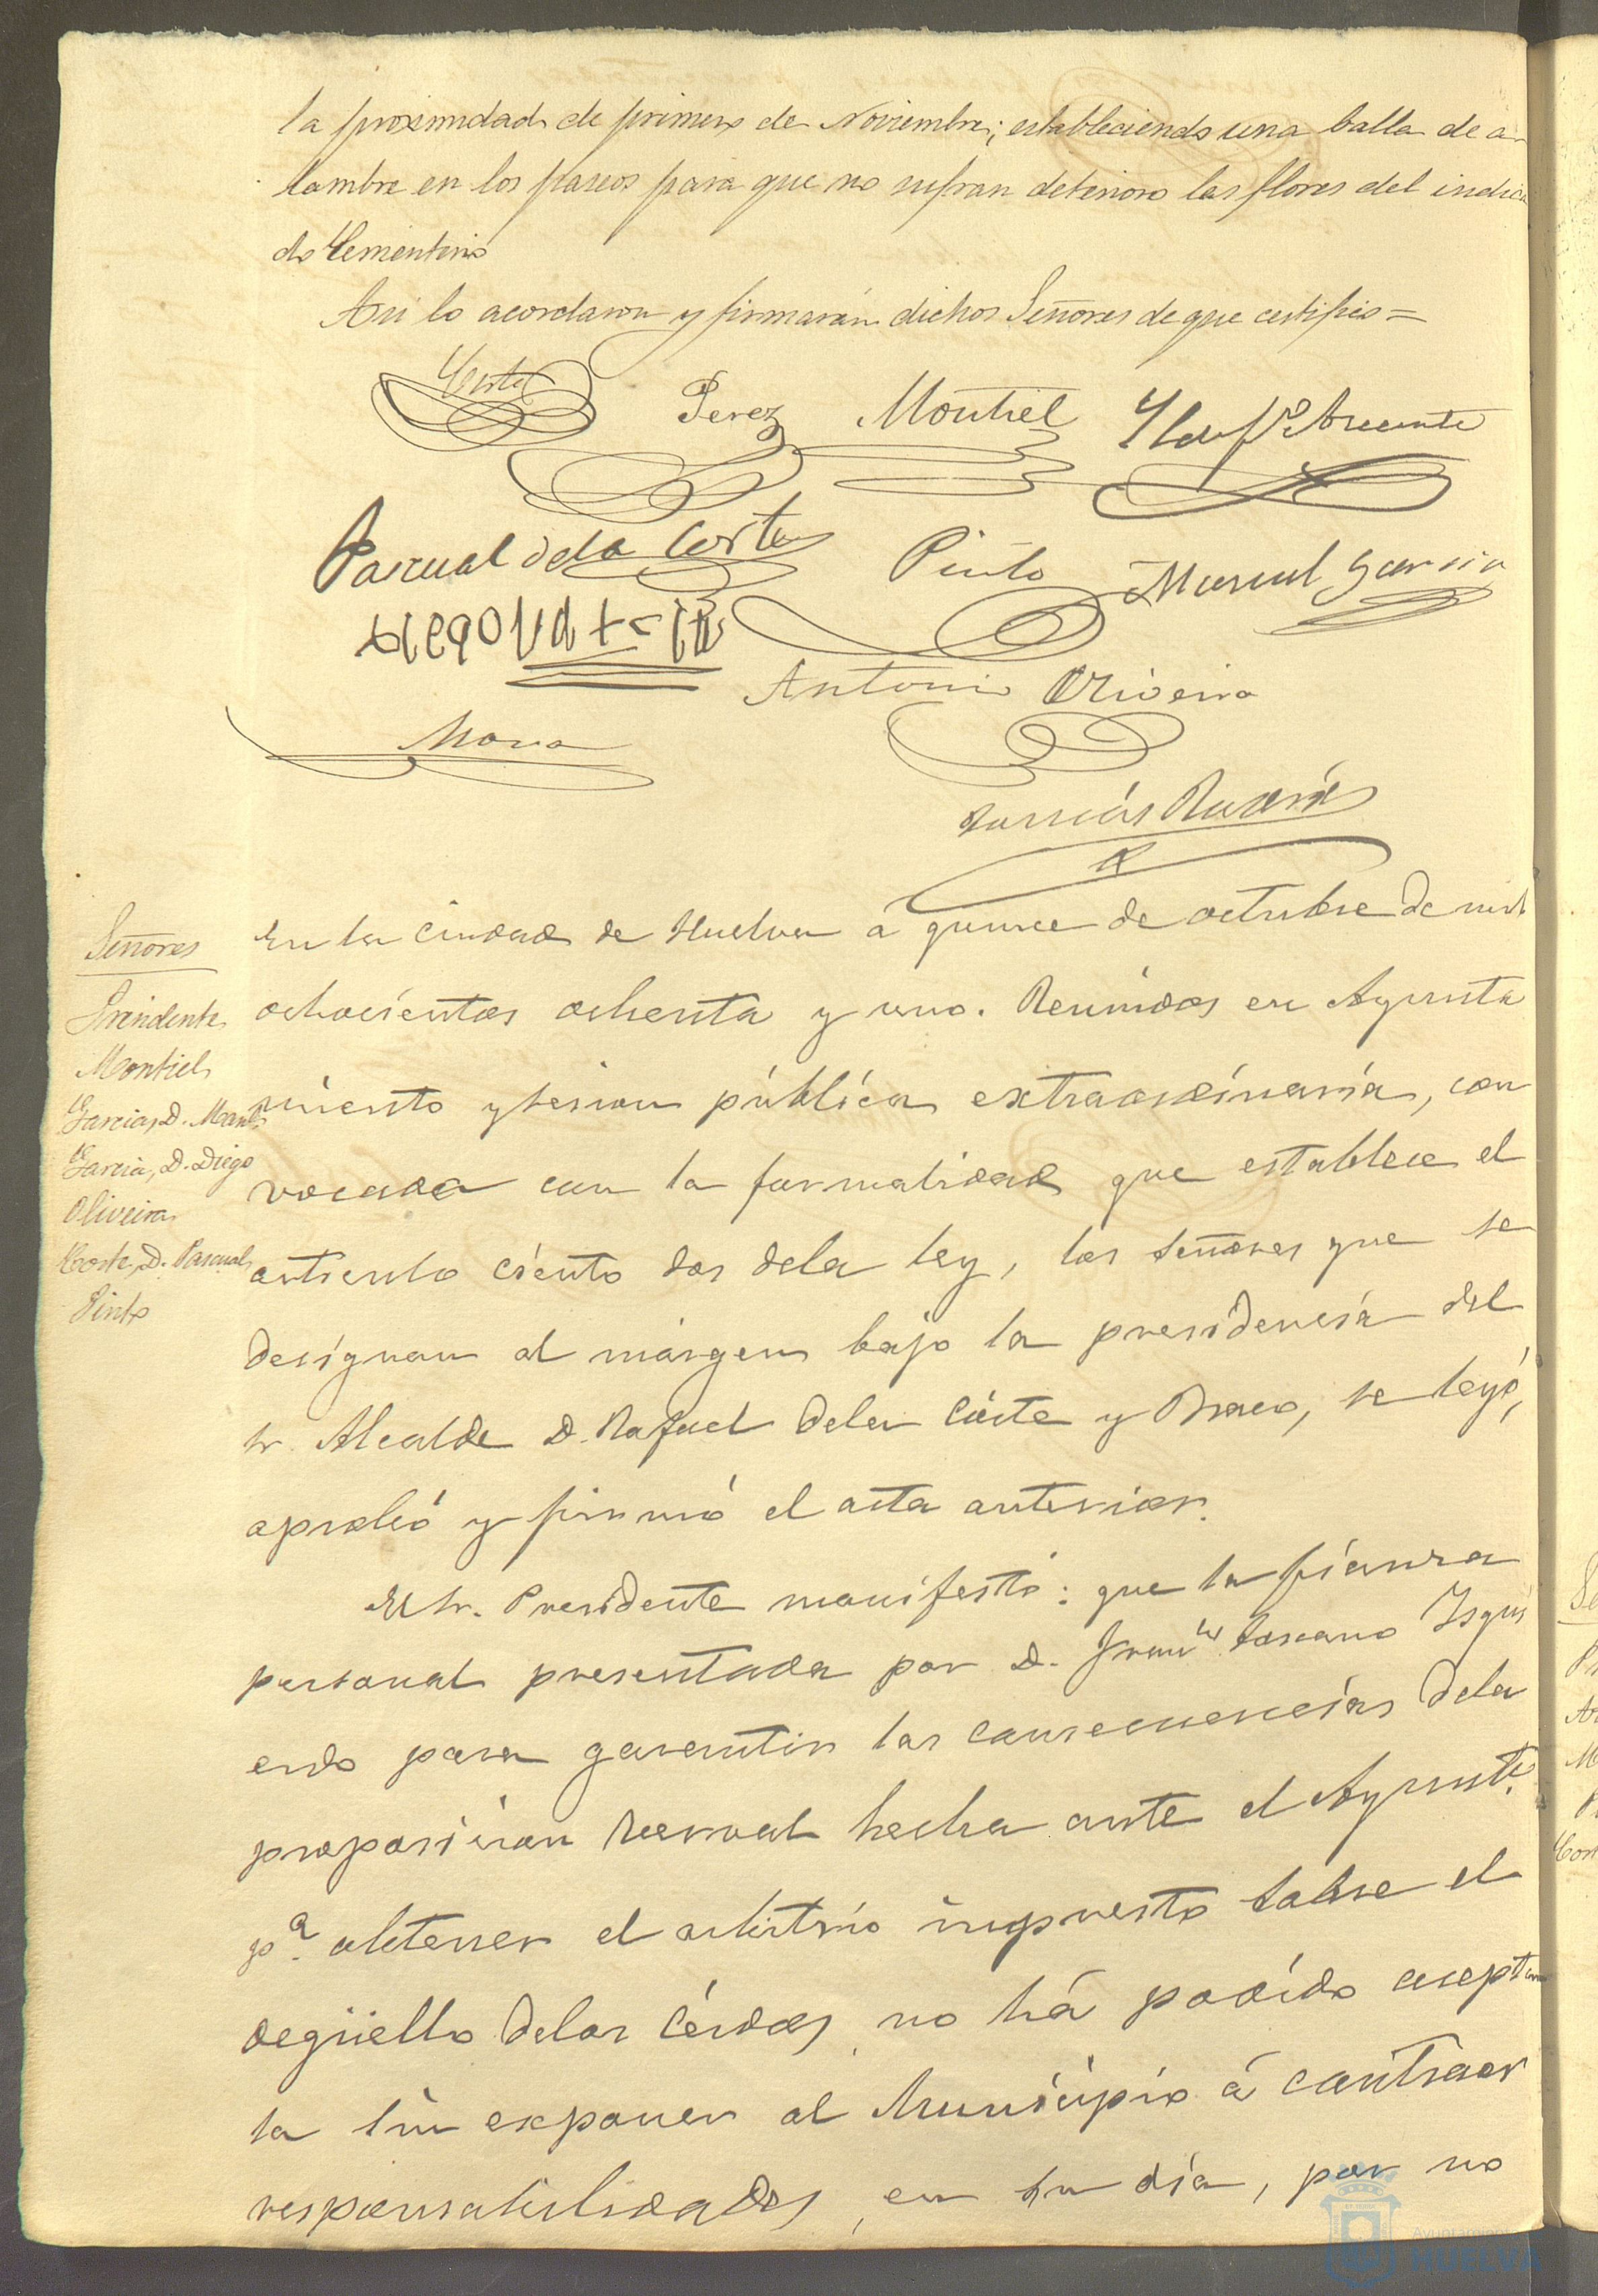 la proximidad de primero de Noviembre; estableciendo una balla de a-
lambre en los paseos para que no sufran deterioro las flores del indica
do Cementerio
Asi lo acordaron y firmarán dichos Señores de que certifico =
Corte
Perez
Montiel
Pascual de la Corte
Pinto
Manuel Garcia
Antonio Oliveira
Mora
Señores
Presidente
Montiel
Garcia, D. Manl
Garcia, D. Diego
Oliveira
Corte, D. Pascual
Pinto
En la Ciudad de Huelva á quince de octubre de mil
ochocientos ochenta y uno. Reunidos en Ayunta
miento y sesion pública extraordinaria, con
vocada con la formalidad que establece el
articulo ciento dos dela ley, los señores que se
designan al márgen bajo la presidencia del
Sr. Alcalde D. Rafael dela Córte y Bravo, se leyó,
aprobó y firmó el acta anterior.
El Sr. Presidente manifestó: que la fianza
personal presentada por D. Franco Toscano Izqui
erdo para garantir las consecuencias dela
proposicion verval hecha ante el Ayuntto
pa. obtener el arbitrio impuesto sobre el
degüello delos cérdos, no há podido acept
la sin exponer al Municipio á contraer
responsabilidades, en su dia, por no
Ayuntamiento
HUELVA